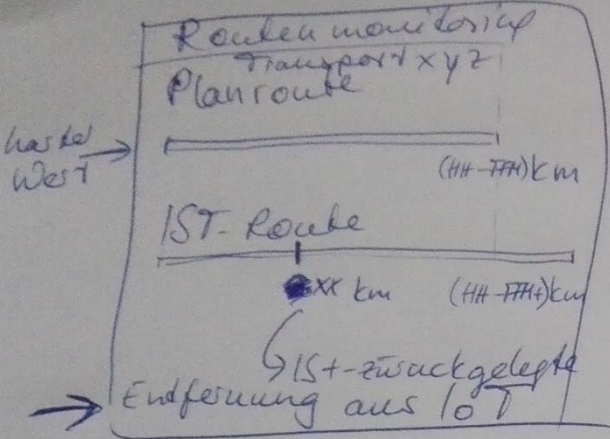 Routenmonitoring
Transport xyz
Planroute
Wert
km
IST-Route
xx km
km
IST-zurückgelegte
Entfernung aus IoT